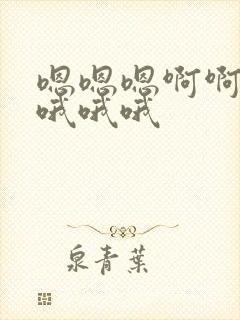 嗯嗯嗯啊啊
哦哦哦
泉青葉